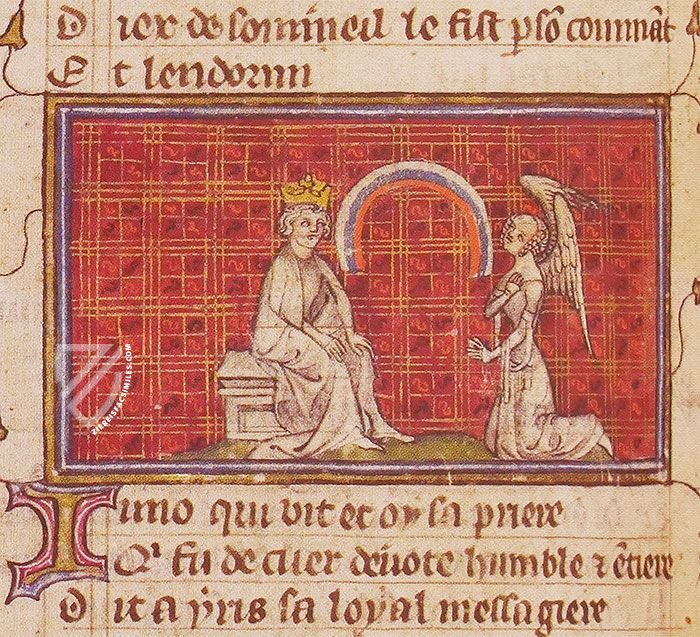 Diex de sommeil le fist p̲ sō cōmmāt
Et lendormi
ZIEREISFACSIMILES.COM
Iuno qui vit et oy sa priere
Q̇ fu de cuer deuote humble ⁊ ētiere
Dit a yris sa loyal messagiere